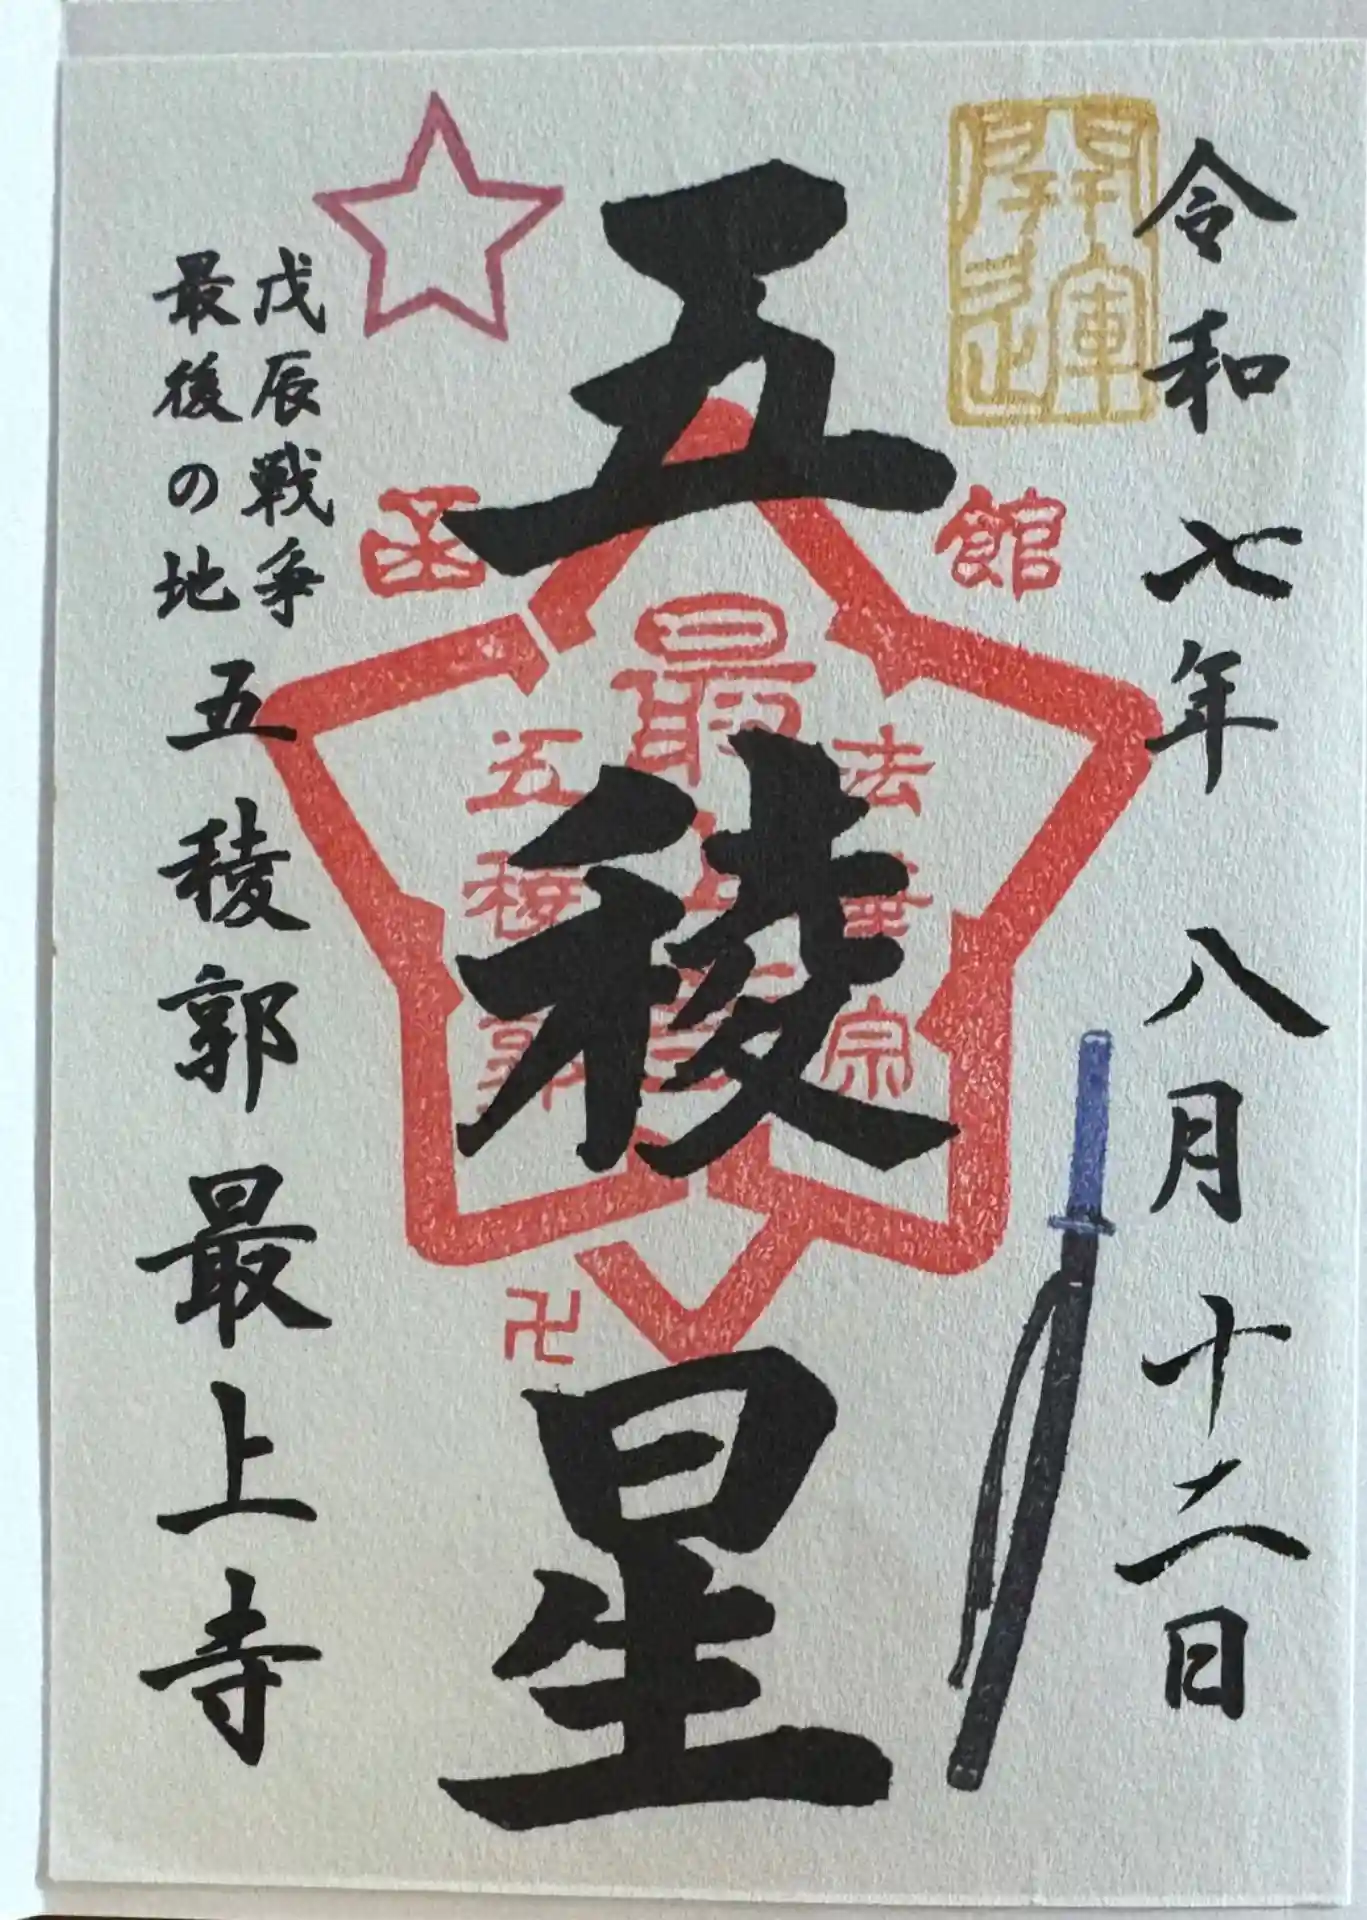 開運
令和七年八月十二日
五稜星
函館
法華宗
最上寺
五稜郭
卍
戊辰戦争
最後の地
五稜郭最上寺